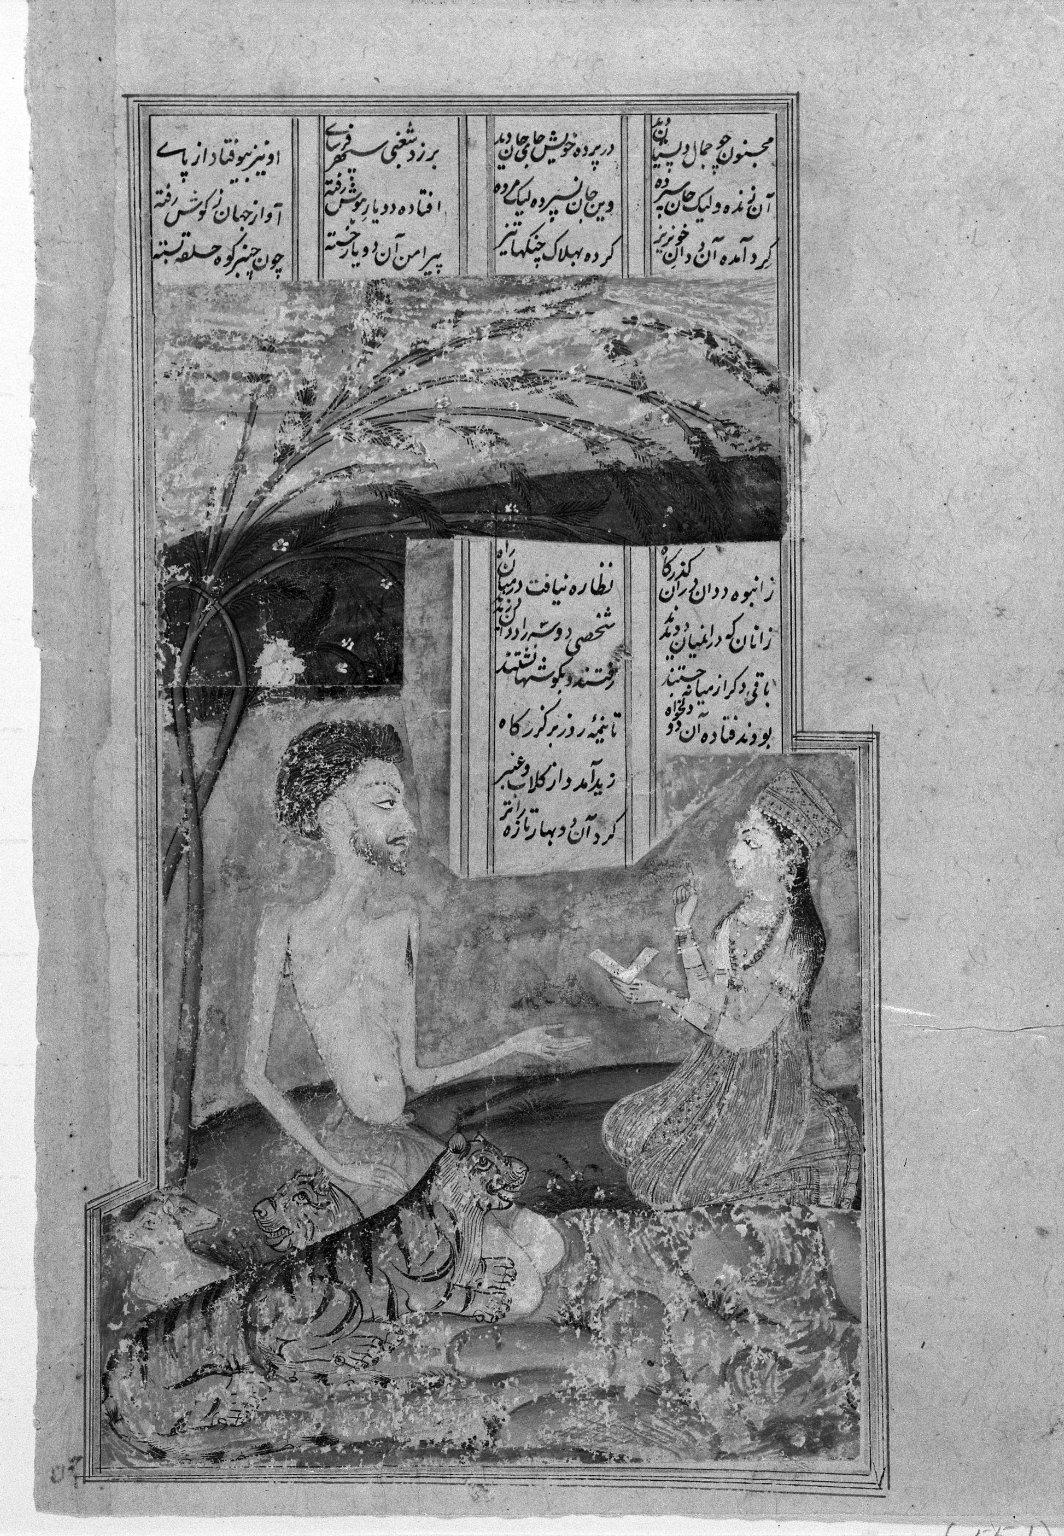 مجنون چو جمال دلستان دید
در پرده خویش جای جان دید
برزد شغبی سپهر فرسای
او نیز بیوفتاد از پای
آن زنده ولیک جان سپرده
وین جان نسپرده لیک مرده
افتاده دو یار هوش رفته
آواز جهان ز گوش رفته
گرد آمده آن ددان خونریز
کرده بهلاک چنگها تیز
پیرامن آن دو یار خسته
چون چنبر کوه حلقه بسته
ز انبوه ددان در آن گذرگاه
نظاره نیافت در میان راه
زانان که در انمیان دویدند
شخصی دو سه را ددان
باقی دگر از میانه جستند
رفتند و بگوشها نشستند
بودند فتاده آن دو دلخواه
تا نیمه روز بر گذرگاه
زید آمد و از گلاب و عنبر
کرد آن دو بهار تازه را تر